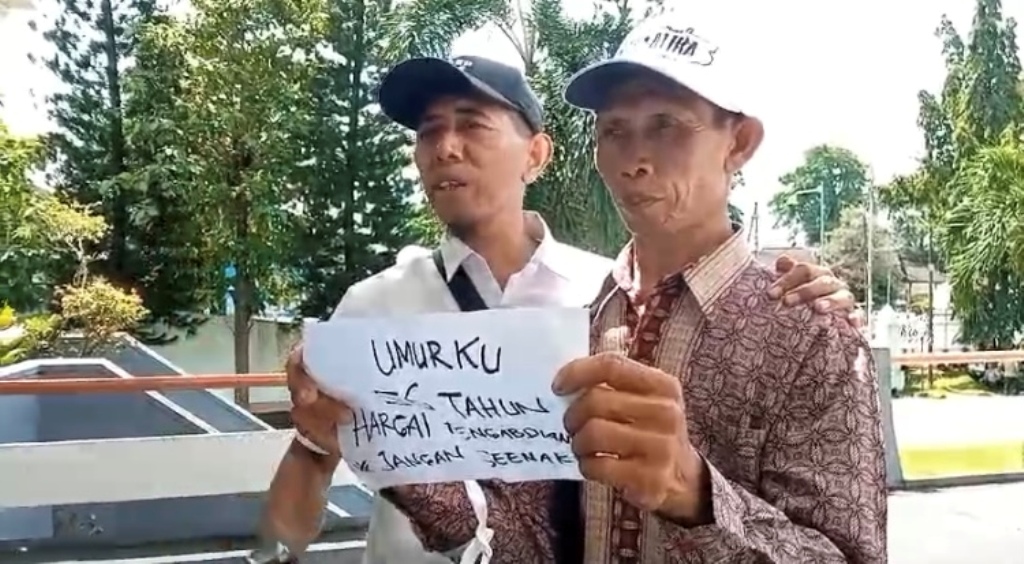 ATIKA
UMURKU
56 TAHUN
HARGAI PENGABDIAN
JANGAN SEENAK